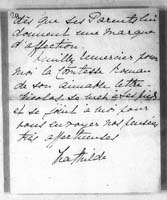 dès que ses Parents lui
donnent une marque
d'affection.
Veuillez remercier pour
moi la Comtesse Roman
de son aimable lettre
Nicolas se met à vos pieds
et se joint à moi pour
vous envoyer nos pensées
très affectueuses
Mathilde